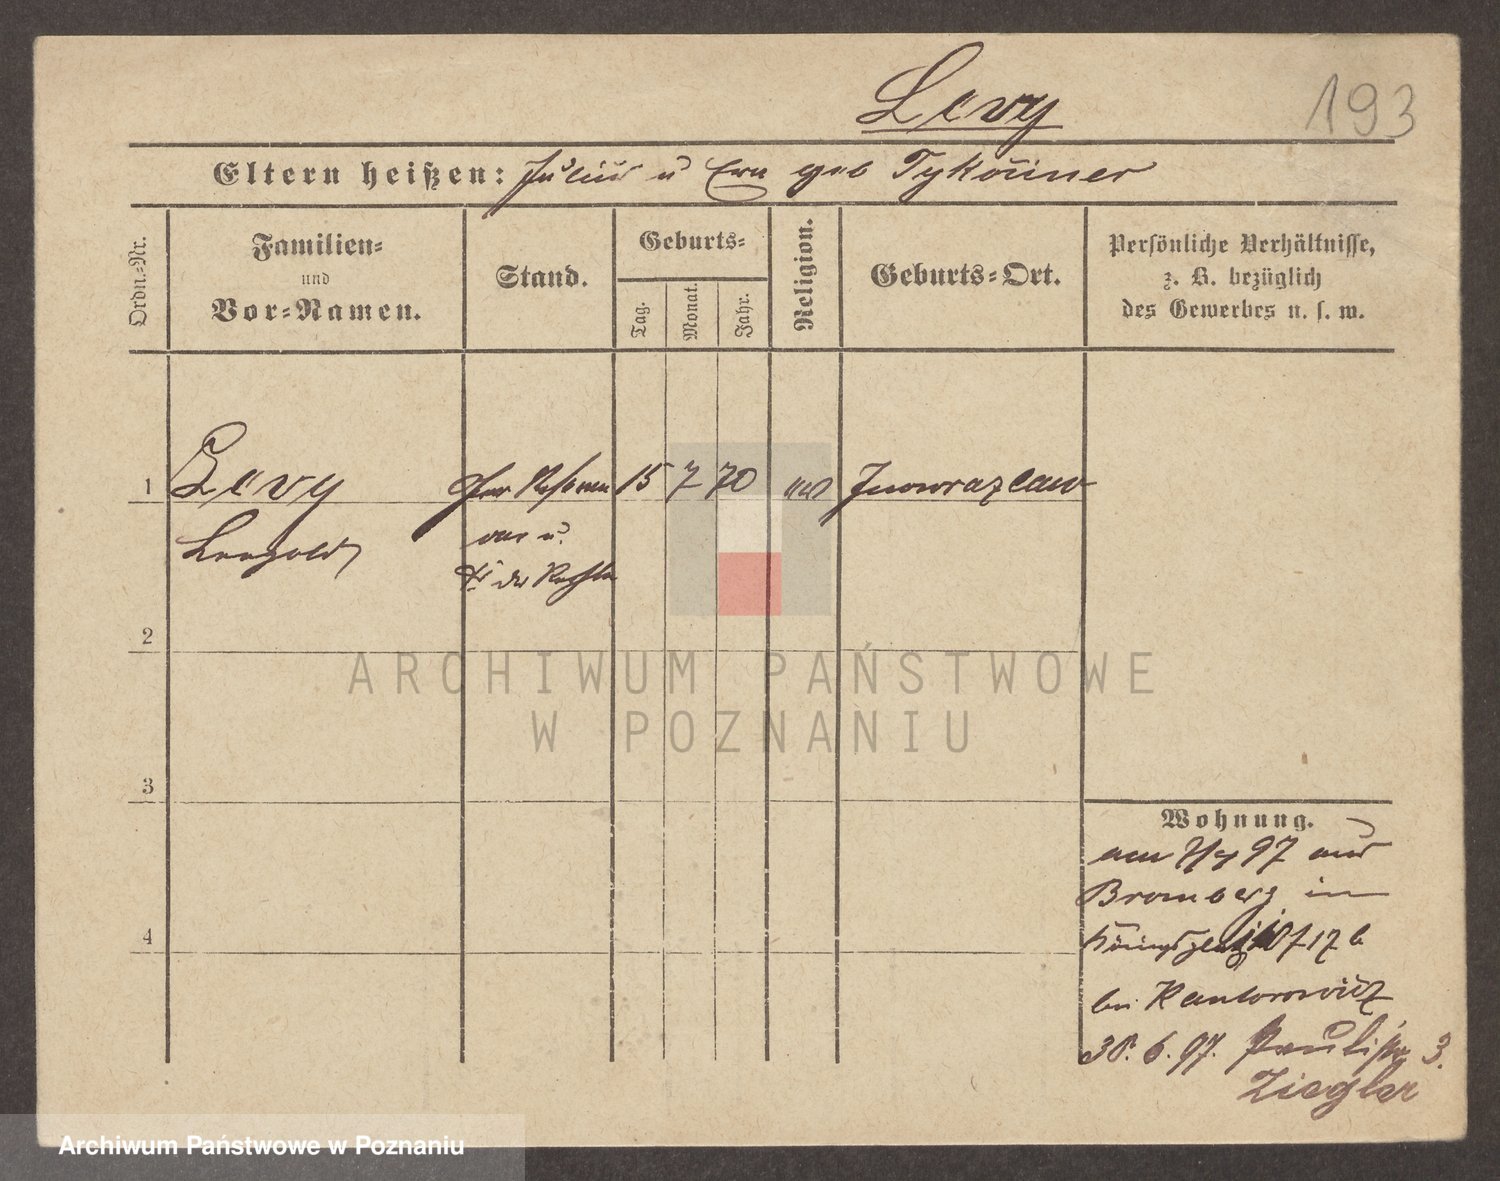 Levy
193
Eltern heißen: Julius u Eva geb Tykociner
Ordn.-Nr.
Familien-
und
Vor-Namen.
Stand.
Geburts-
Tag.
Monat.
Jahr.
Religion.
Geburts-Ort.
Persönliche Verhältnisse,
z. B. bezüglich
des Gewerbes u. s. w.
1
Levy
Leopold
15 7 70
Inowrazlaw
der Rechte
2
3
4
ARCHIWUM PAŃSTWOWE
W POZNANIU
Wohnung.
97 aus
Bromberg in
Königsplatz 17 b
bei Kantorowicz
6. 97. Paulistr 3.
Ziegler
Archiwum Państwowe w Poznaniu